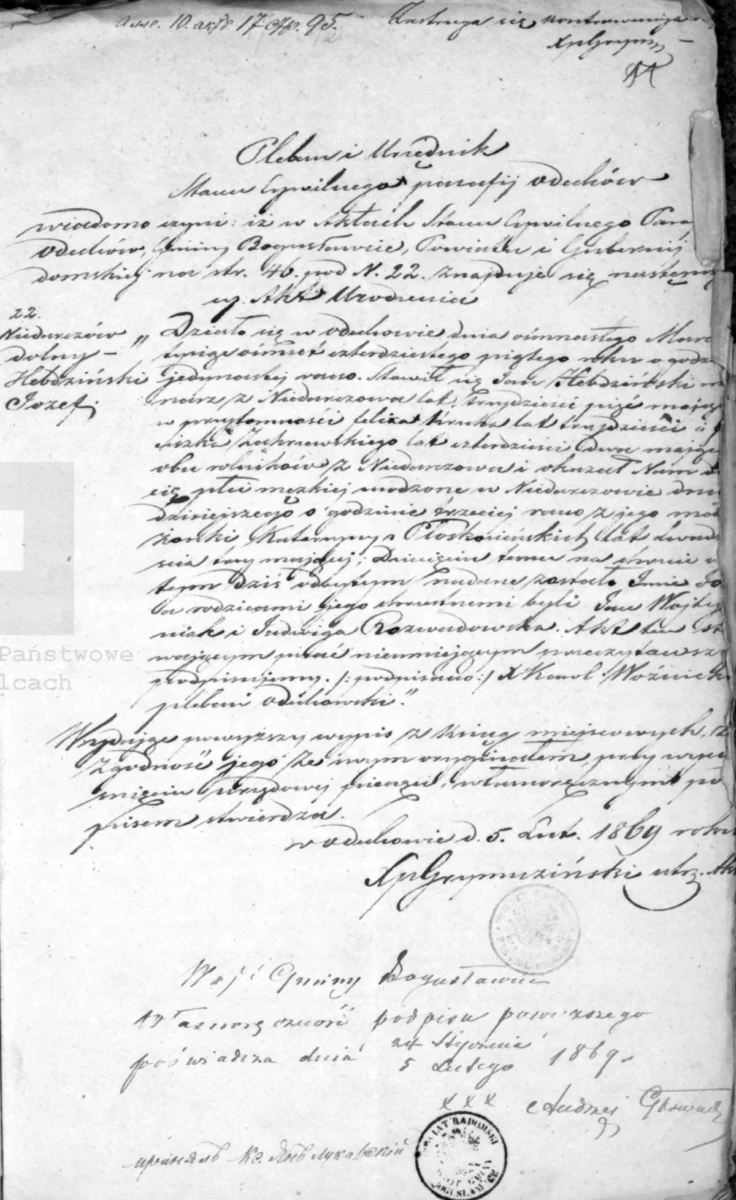 17 95. Zastrzega się
XpGrymuz
Pleban i Urzędnik
Stanu Cywilnego parafij Odechów
wiadomo czyni: iż w Aktach Stanu Cywilnego Para
Odechów, Gminy Bogusławice, Powiatu i Gubernij
domskiej na str. 46. pod N. 22. znajduje się następuj
cy. Akt Urodzenia
22.
Niedarczów
dolny –
Hebdziński
Jozef
„Działo się w Odechowie dnia ośmnastego Marc
tysiąc ośmset czterdziestego piątego roku o godzi
jedynastej rano. Stawił się Jan Hebdziński
narz z Niedarczowa lat trzydzieści pięć mając
w przytomności Felixa Kruka lat trzydzieści i
ciszka lat czterdzieści dwa mając
obu rolników z Niedarczowa i okazał Nam d
cię płci męzkiej urodzone w Niedarczowie dnia
dzisiejszego o godzinie trzeciej rano z jego mał
żonki Katarzyny z Płoskonińskich lat dwadz
ścia trzy mającej; Dziecięciu temu na chrzcie
tym dziś odbytym nadane zostało Imie Jo
a rodzicami jego chrzestnemi byli Jan Wojty
niak i Jadwiga Rozwadowska. Akt ten st
wającym pisać nieumiejącym przeczytawszy
podpisujemy. /:podpisano:/ X Karol Woźnicki
pleban Odechowski."
Wydając powyższy wypis z Ksiąg miejscowych,
zgodność jego ze swym oryginałem, przy wyci
śnięciu urzędowej pieczęci, własnoręcznym po
pisem stwierdza.
w Odechowie d. 5. Lut. 1869 roku
XpGrymuziński utrz. Akt
Wójt Gminy Bogusławice
własnoręczność podpisu powyższego
poświadcza dnia 24 Stycznia
5 Lutego 1869 r
x x x Andrzej
Państwowe
lcach